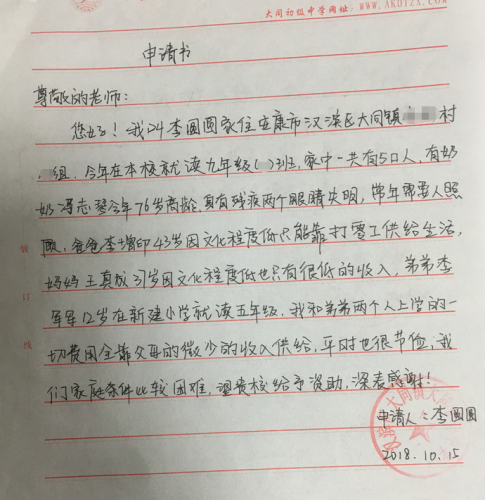 大同初级中学网址：WWW.AKDTZX.
申请书
尊敬的老师：
您好！我叫李圆圆家住安康市汉滨区大同镇 村
组，今年在本校就读九年级( )班，家中一共有5口人，有奶
奶冯志琴今年76岁高龄，具有残疾两个眼睛失明，常年需要人照
顾，爸爸李增印43岁因文化程度低只能靠打零工供给生活，
妈妈王真成31岁因文化程度低也只有很低的收入，弟弟李
军军12岁在新建小学就读五年级，我和弟弟两个人上学的一
切费用全靠父母的微少的收入供给，平时也很节俭，我
们家庭条件比较困难，望贵校给予资助，深表感谢！
申请人：李圆圆
2018.10.15
装
订
线
大同镇